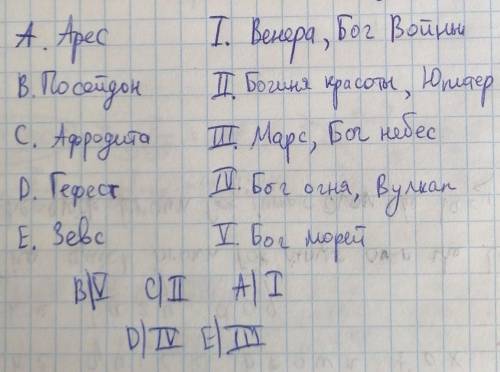 A. Арес I. Венера, Бог Войны
B. Посейдон II. Богиня красоты, Юпитер
C. Афродита III. Марс, Бог небес
D. Гефест IV. Бог огня, Вулкан
E. Зевс V. Бог морей
B|V C|II A|I
D|IV E|III